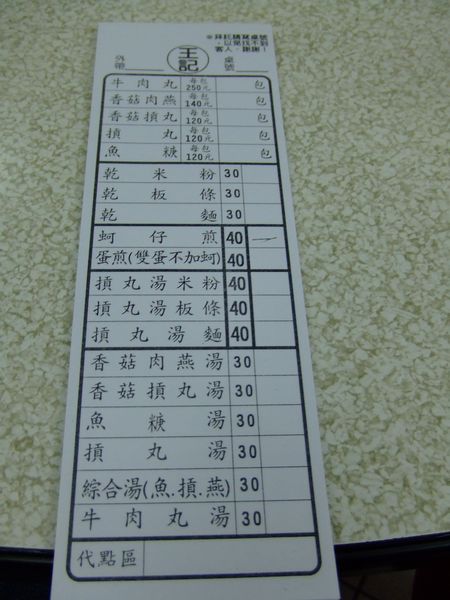 ※拜託請寫桌號
，以免找不到
客人，謝謝！
王記
外帶
桌號
牛肉丸 每包250元 包
香菇肉燕 每包140元 包
香菇摃丸 每包120元 包
摃丸 每包120元 包
魚糖 每包120元 包
乾米粉 30
乾板條 30
乾麵 30
蚵仔煎 40 一
蛋煎(雙蛋不加蚵) 40
摃丸湯米粉 40
摃丸湯板條 40
摃丸湯麵 40
香菇肉燕湯 30
香菇摃丸湯 30
魚糖湯 30
摃丸湯 30
綜合湯(魚.摃.燕) 30
牛肉丸湯 30
代點區